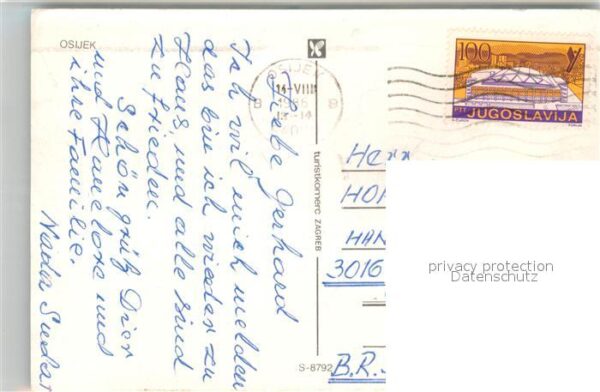 OSIJEK
Liebe Gerhard
Ich wil mich melden
das bin ich wieder zu
Haus, und alle sind
zu frieden.
Schön grüß Dier
und Hanelore und
ihre Familie.
Nada
turistkomerc ZAGREB
S-8792
OSIJEK
14-VIII
B B
13-14
100
PTT JUGOSLAVIJA
HE
HAN
3016
B.R.
privacy protection
Datenschutz